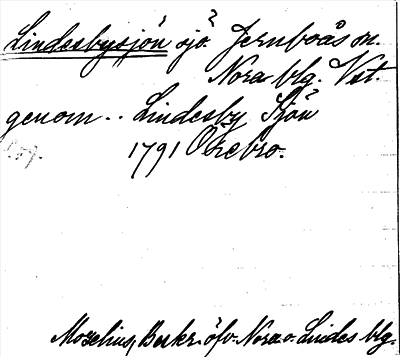 Lindesbysjön sjö? Jernboås sn.
Nora blg. Vst.
genom.. Lindesby Sjön
1791 Örebro.
Mozelius, Beskr. öfv. Nora o. Lindes blg.